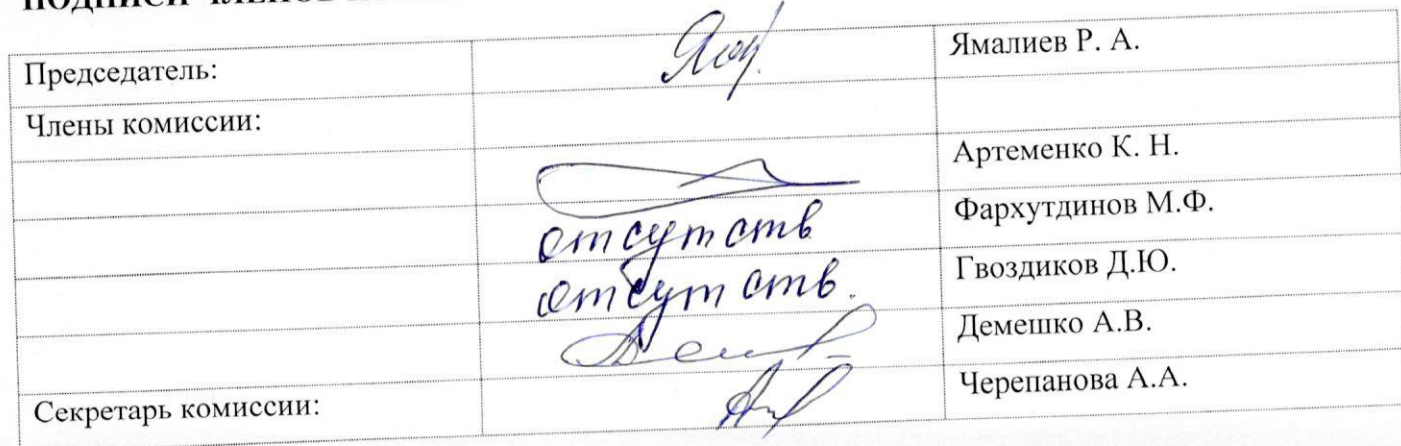 ПОДПИСИ ЧЛЕНОВ
Председатель: Ямалиев Р. А.
Члены комиссии:
Артеменко К. Н.
отсутств Фархутдинов М.Ф.
отсутств. Гвоздиков Д.Ю.
Демешко А.В.
Секретарь комиссии: Черепанова А.А.